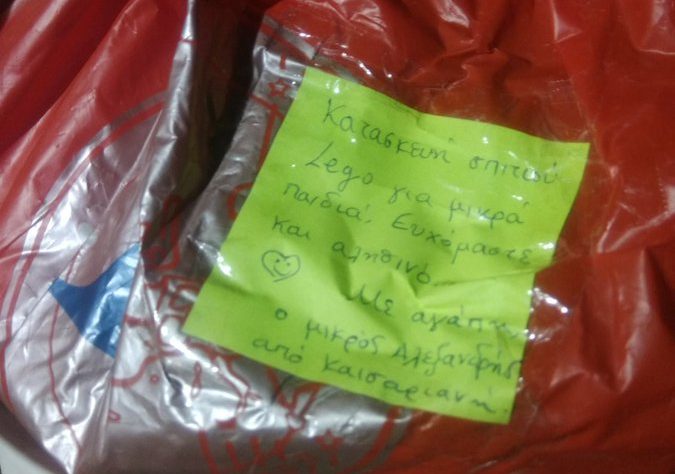 Κατασκευή σπιτιού
Lego για μικρά
παιδιά! Ευχόμαστε
και αληθινό.
Με αγάπη
ο μικρός Αλεξανδρής
από Καισαριανή.